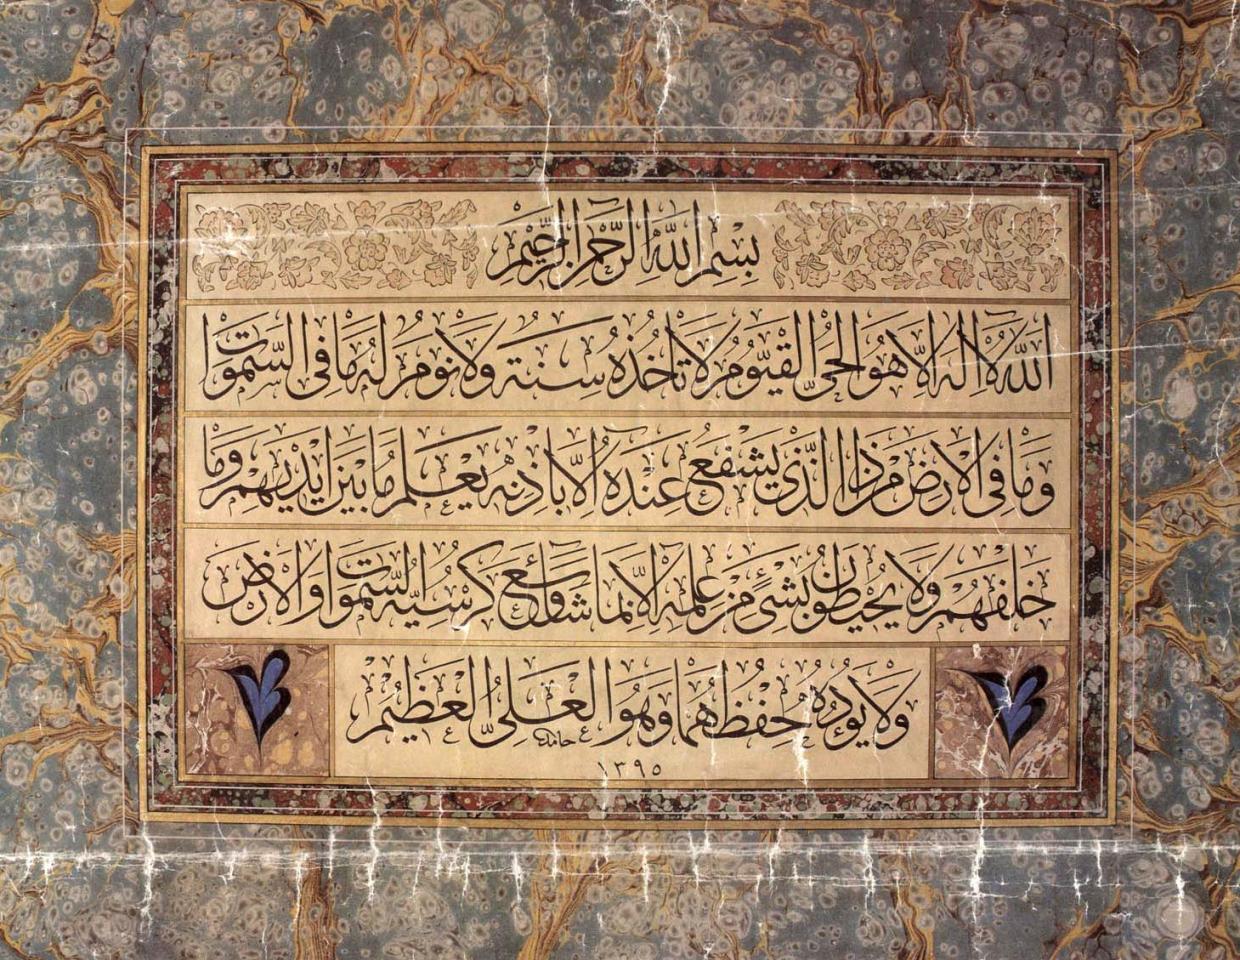 بِسْمِ اللهِ الرَّحْمٰنِ الرَّحِيمِ
اَللهُ لَا اِلٰهَ اِلَّا هُوَ الْحَىُّ الْقَيُّومُ لَا تَأْخُذُهُ سِنَةٌ وَلَا نَوْمٌ لَهُ مَا فِى السَّمٰوَاتِ
وَمَا فِى الْاَرْضِ مَنْ ذَا الَّذِى يَشْفَعُ عِنْدَهُ اِلَّا بِاِذْنِهِ يَعْلَمُ مَا بَيْنَ اَيْدِيهِمْ وَمَا
خَلْفَهُمْ وَلَا يُحِيطُونَ بِشَىْءٍ مِنْ عِلْمِهِ اِلَّا بِمَا شَاءَ وَسِعَ كُرْسِيُّهُ السَّمٰوَاتِ وَالْاَرْضَ
وَلَا يَؤُدُهُ حِفْظُهُمَا وَهُوَ الْعَلِىُّ الْعَظِيمُ
حامد
١٣٩٥